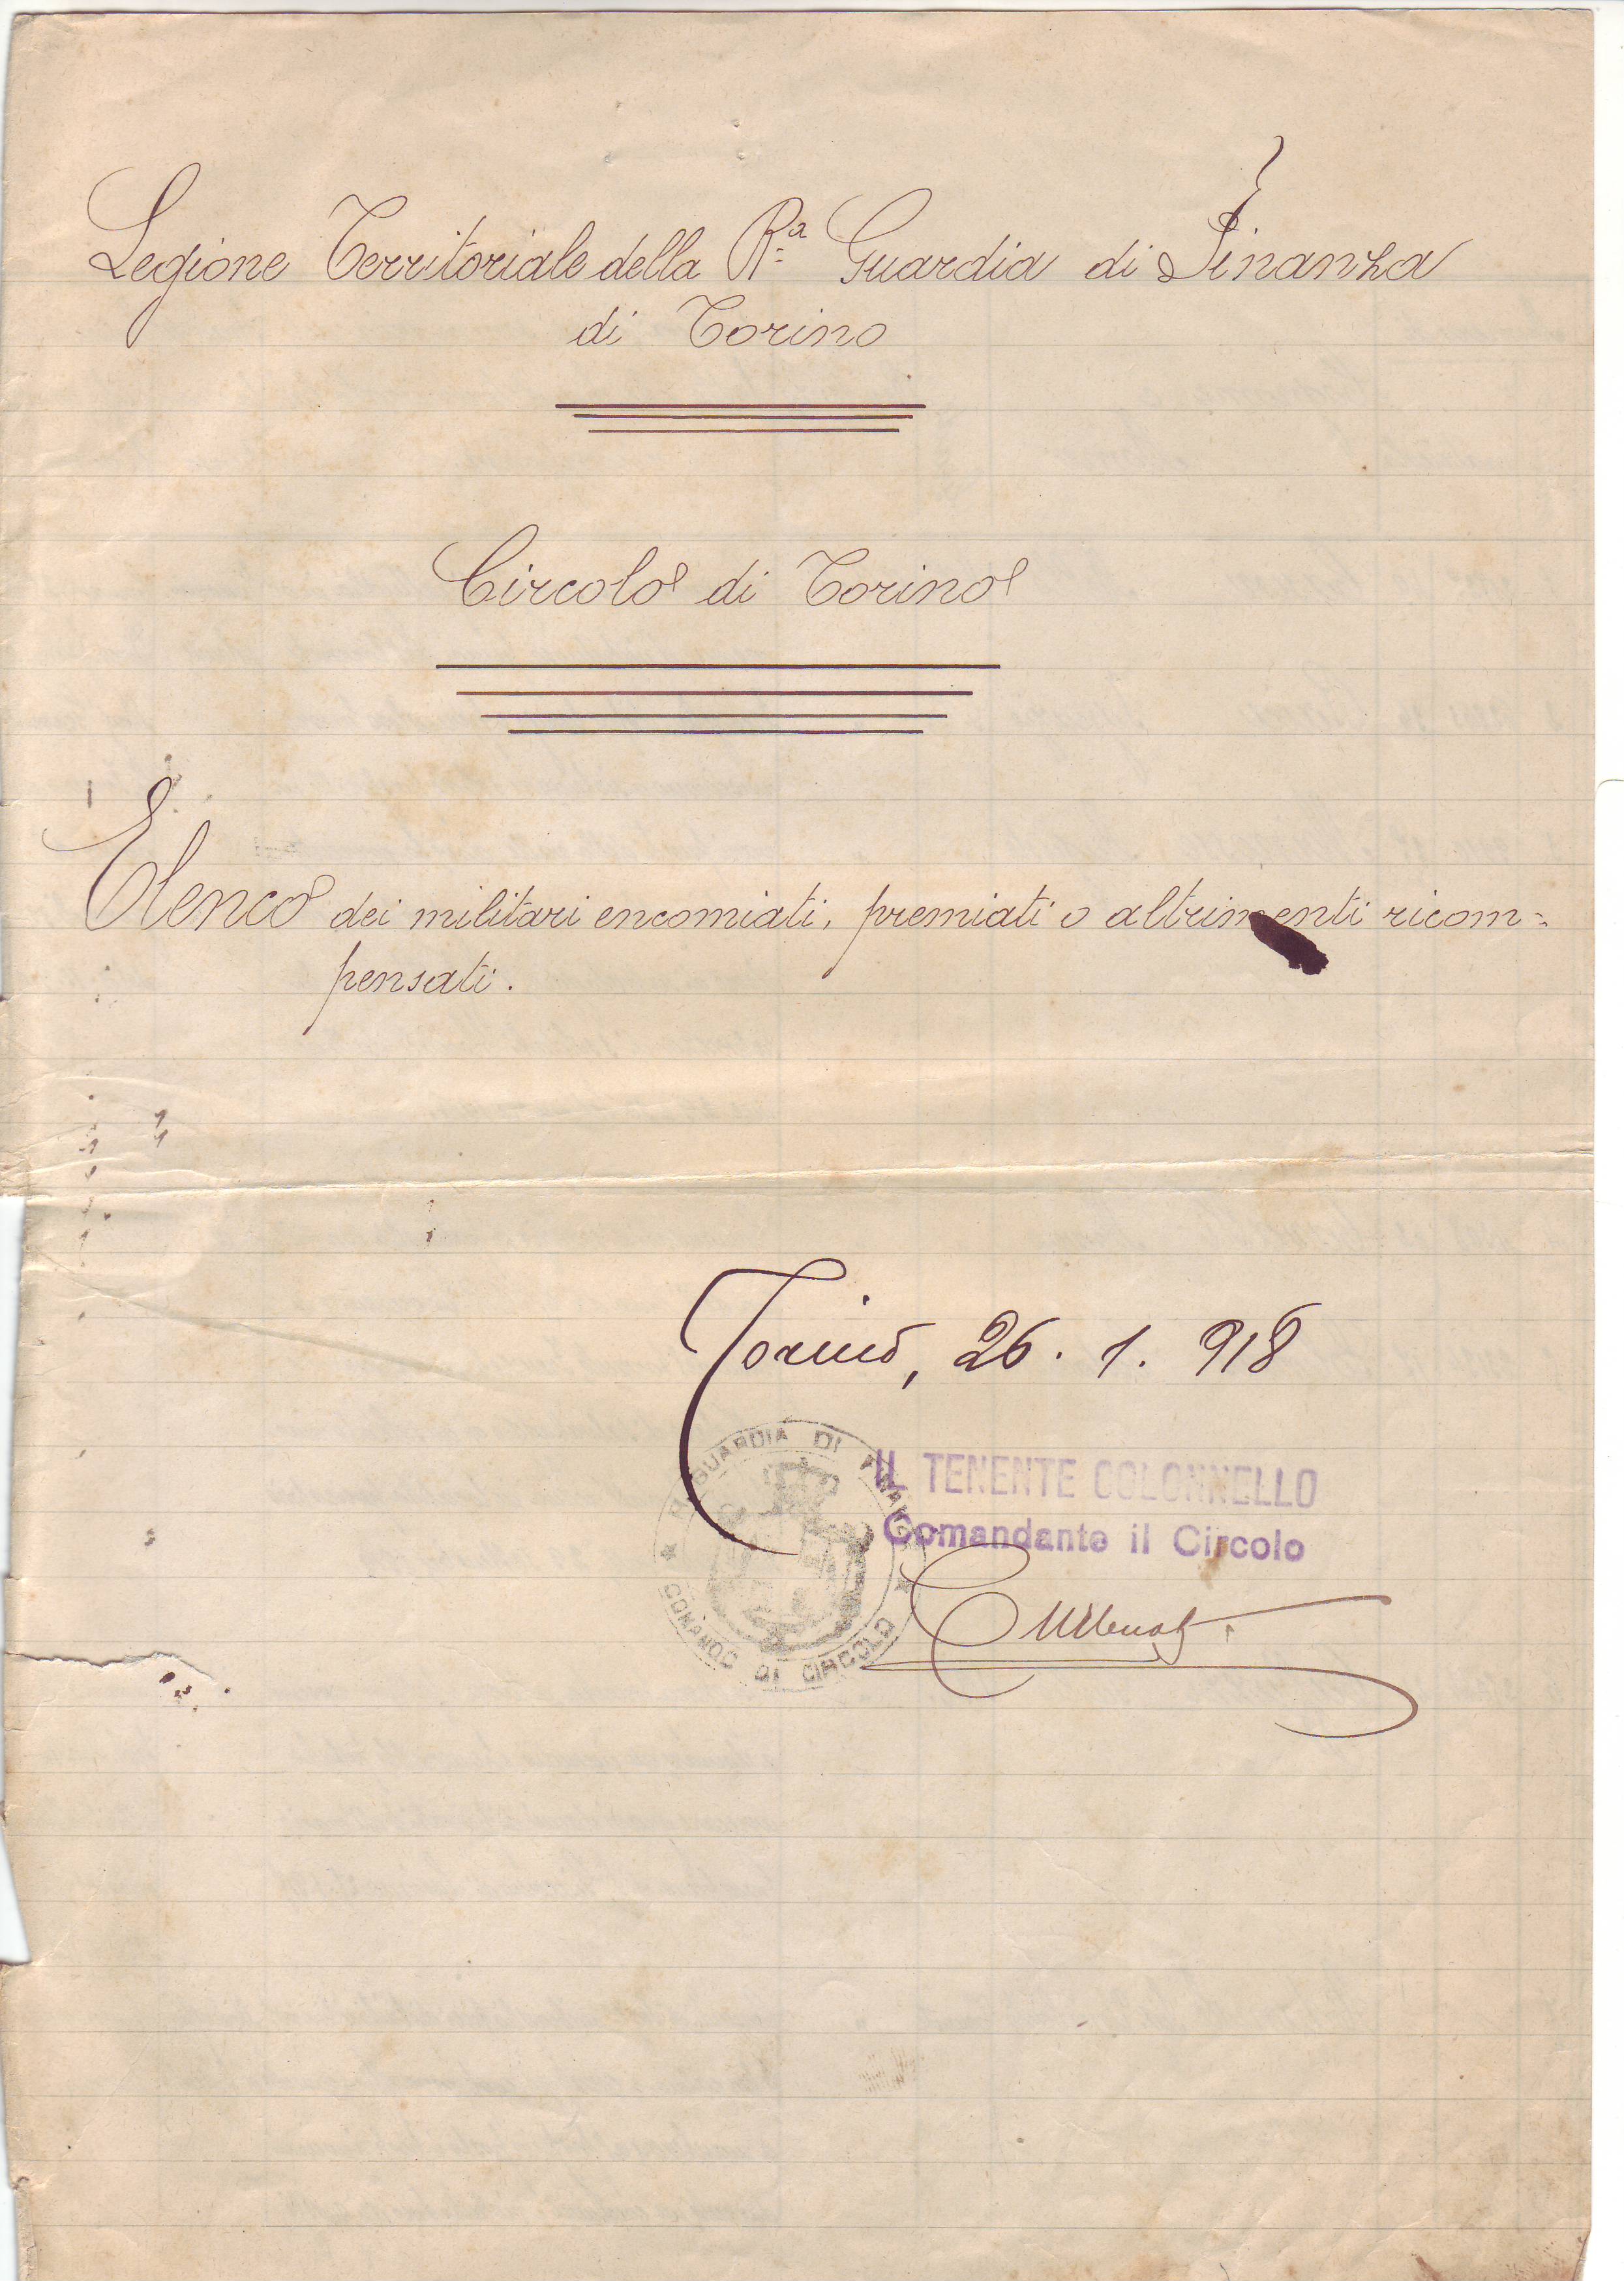 Legione Territoriale della R.ª Guardia di Finanza
di Torino
Circolo di Torino
Elenco dei militari encomiati, premiati o altrimenti ricom=
pensati.
Torino, 26. 1. 918
IL TENENTE COLONNELLO
Comandante il Circolo
R. GUARDIA DI FINANZA
COMANDO DI CIRCOLO